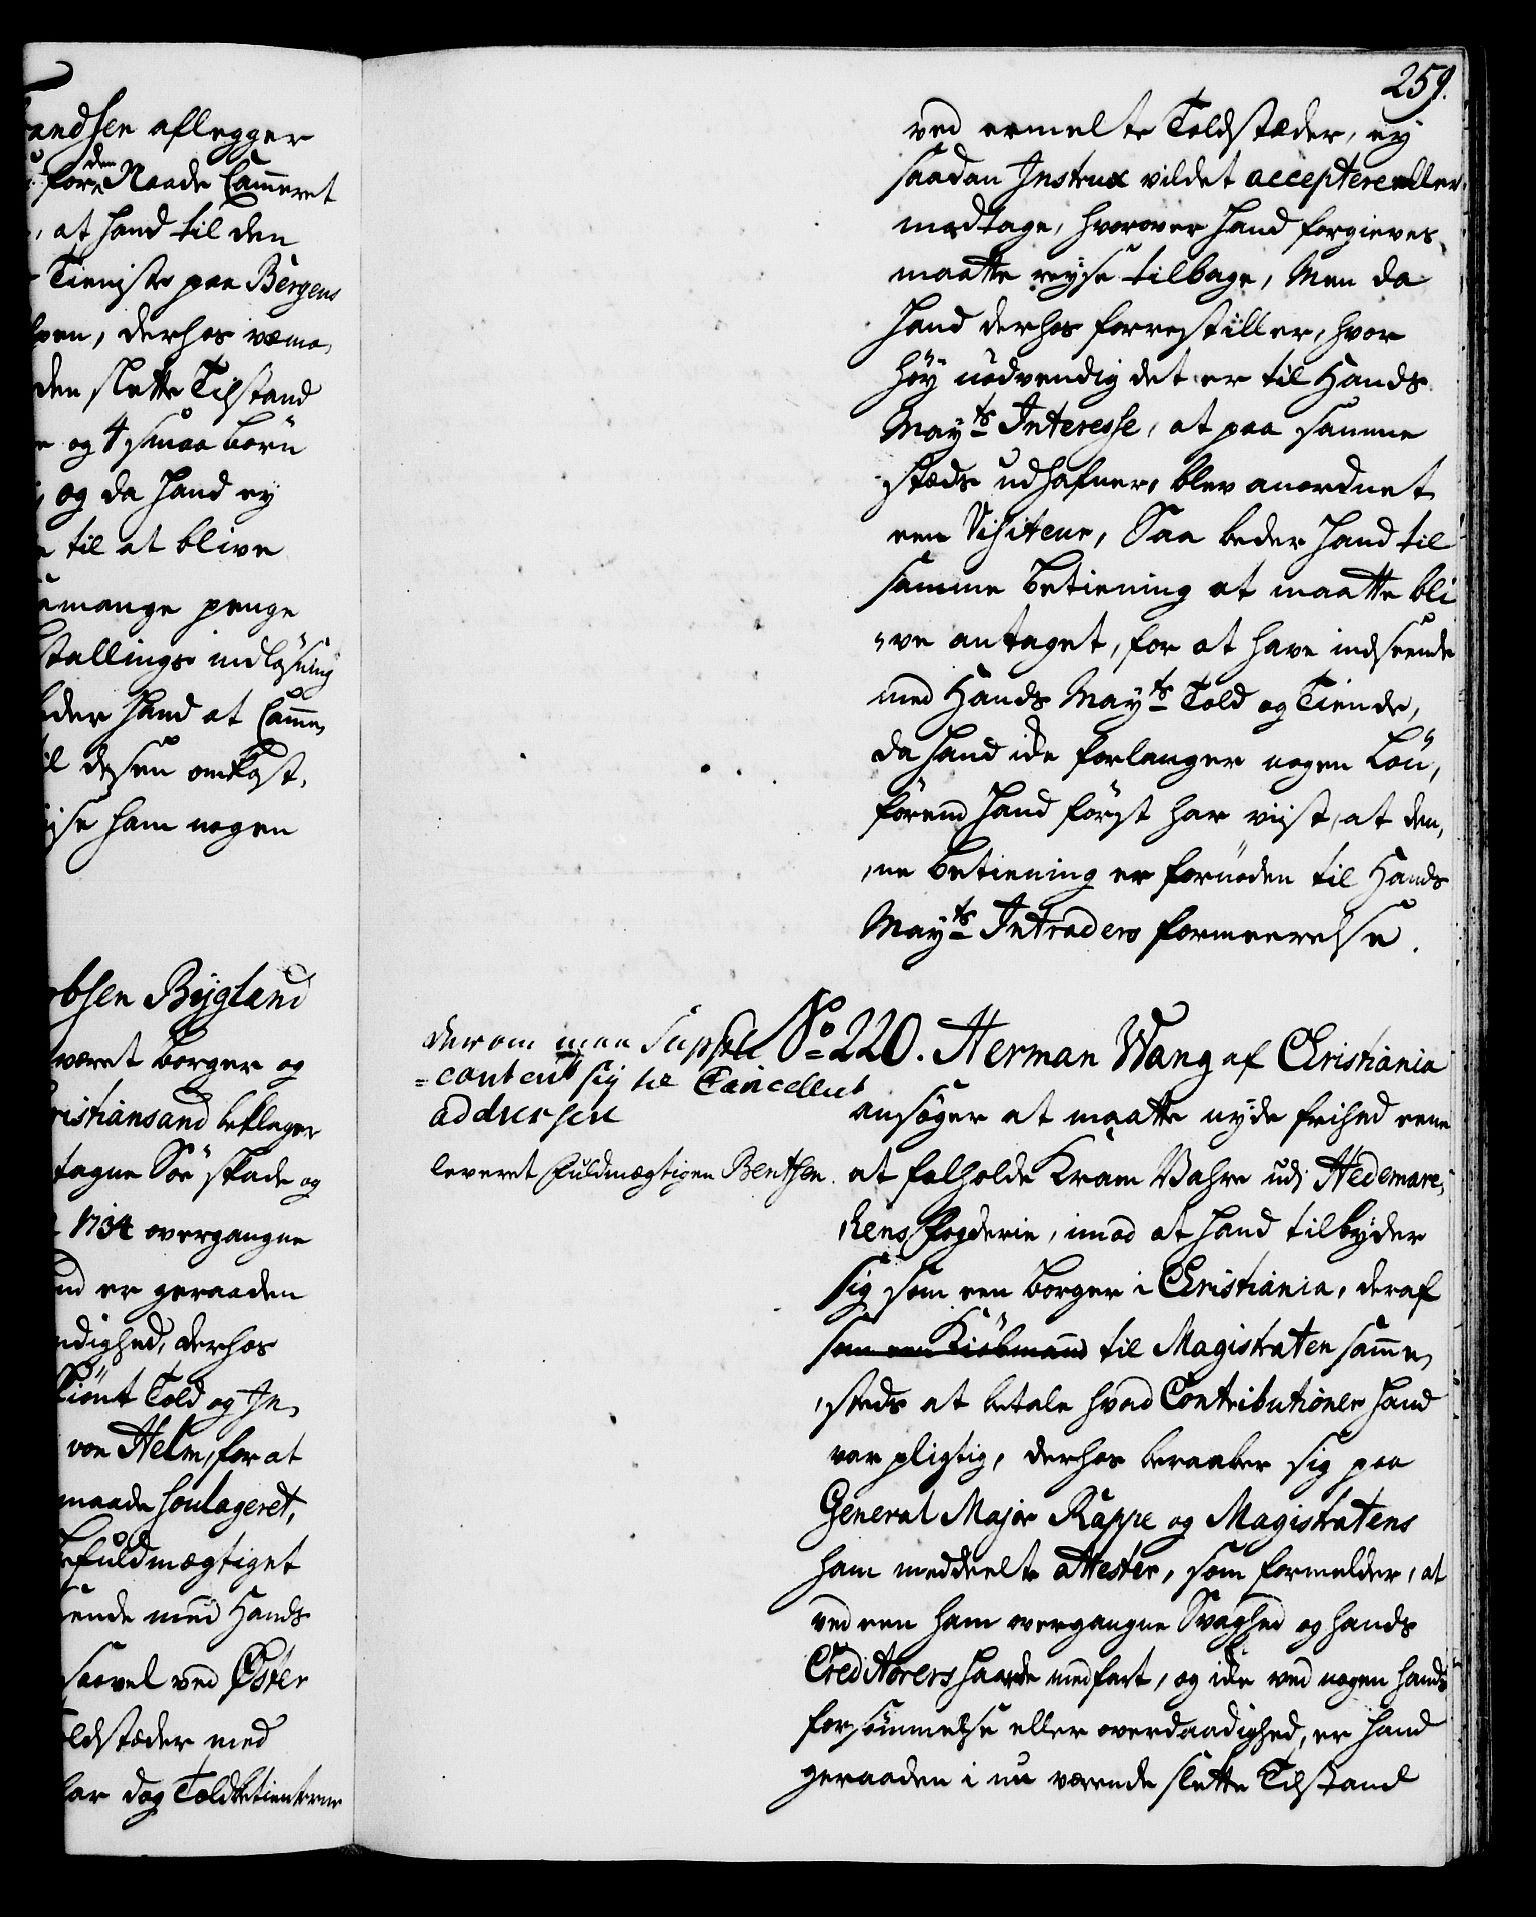 andsen aflegger
for den Naade Cammeret
, at hand til den
Tieniste paa Bergens
den slette Tilstand
og 4 smaa børn
og da hand ey
til at blive
mange penge
stallings indløsning
der hand at Camme,
il dessen omkost,
ise ham nogen
obsen Bygland
været borger og
ristiansand beklager
tagne Söe skade og
1734 overgangne
nd er geraaden
ndighed, derhos
kiönt Told og In,
von Helm, for at
maade soulageret,
efuldmægtiget
eende med Hands
saavel ved Öster
oldstæder med
har dog Toldbetienterne
259.
ved ermelte Toldstæder, ey
saadan Instrux vildet acceptere eller
modtage, hvorover hand forgieves
maatte reyse tilbage, Men da
hand derhos forrestiller, hvor
höy nödvendig det er til Hands
Mayts Interesse, at paa samme
stæds udhafner, blev anordnet
een Visiteur, Saa beder hand til
samme betiening at maatte bli
,,ve antaget, for at have indseende
med Hands Mayts Told og Tiende,
da hand icke forlanger nogen Lön,
förend hand först har viist, at den,
,ne betiening er fornöden til Hands
Mayts Intraders formeerelse.
derom maa Supplicanten
=contenb sig til Cancelliet
addressere
leveret fuldmægtigen Bentsen.
No 220. Herman Wang af Christiania
ansöger at maatte nyde frihed eene
at falholde Kram Vahre udj Hedemarc,
,kens fogderie, imod at hand tilbyder
sig som een borger i Christiania, deraf
som een Kiöbmand til Magistraten samme,
,steds at betale hvad Contributioner hand
var pligtig, derhos beraaber sig paa
General Major Rappe og Magistratens
ham meddeelte attester, som formelder, at
ved een ham overgangne Svaghed og hands
Creditorers haarde medfart, og icke ved nogen hands
forsömmelse eller overdaadighed, er hand
geraaden i nu værende slette Tilstand